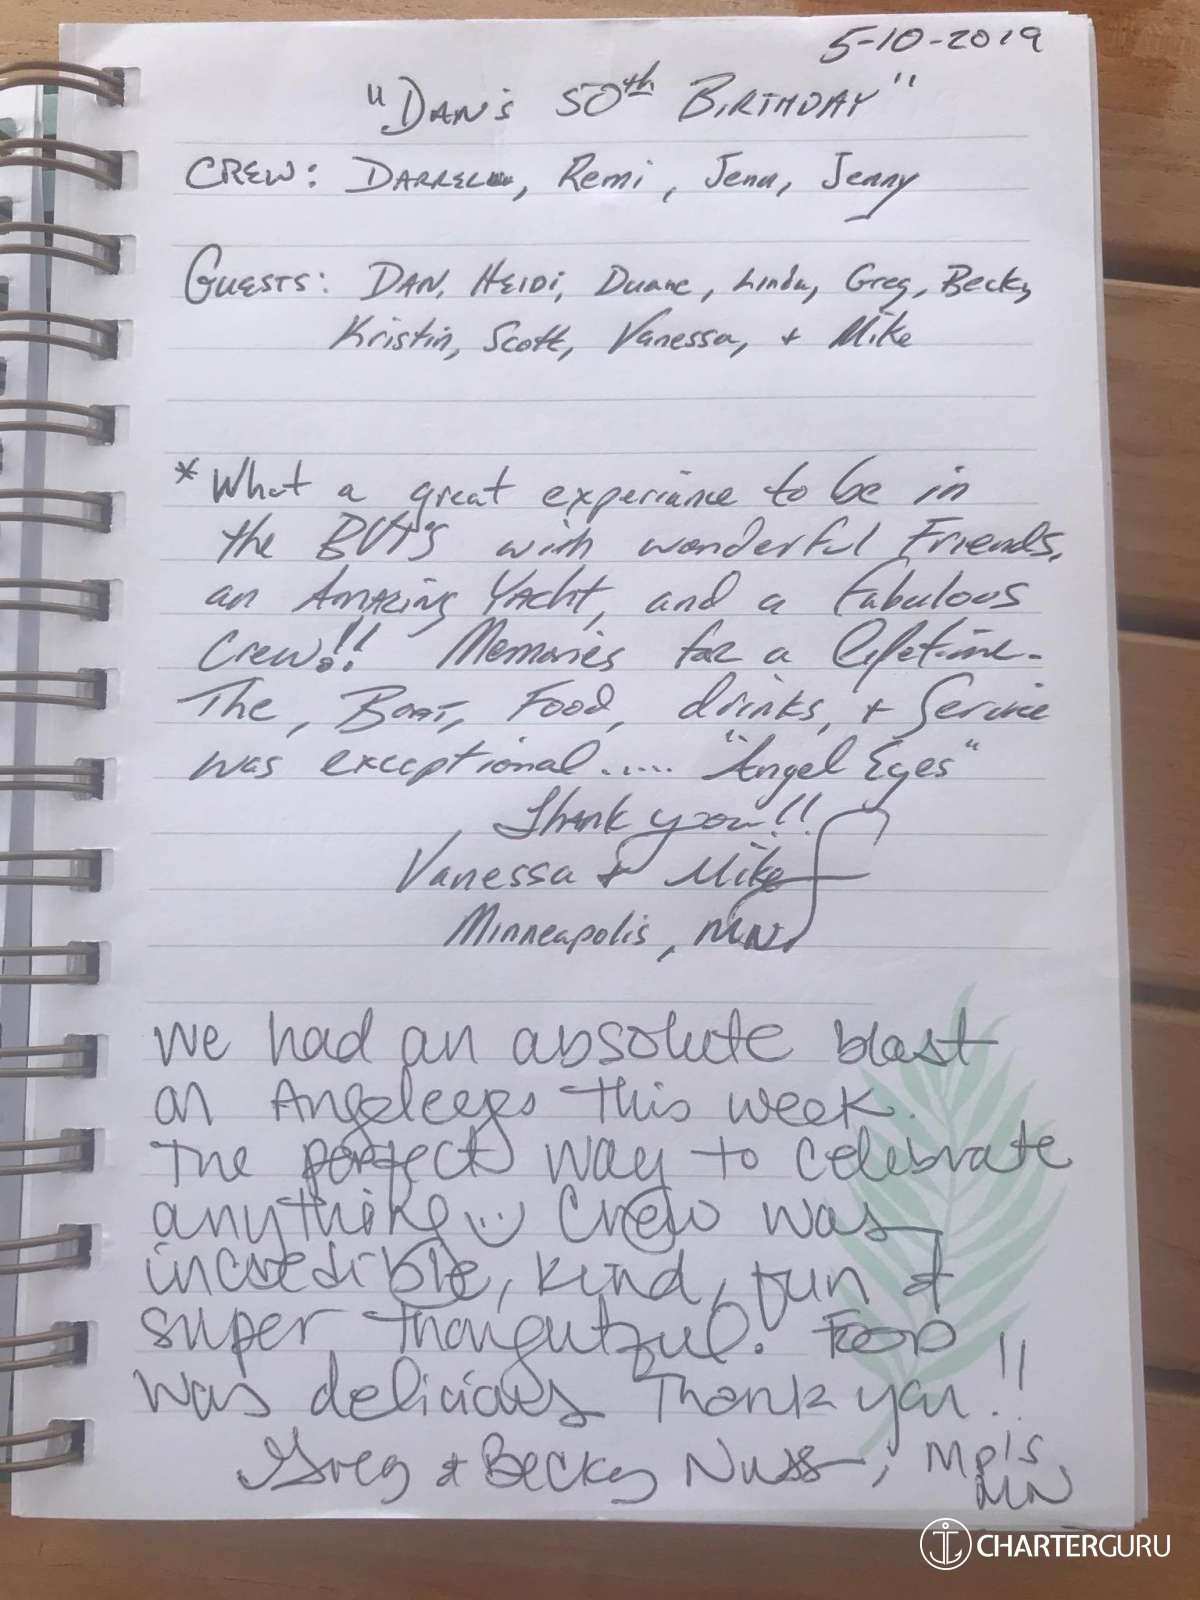 5-10-2019
"DAN's 50th BIRTHDAY"
CREW: DARREL, Remi, Jenn, Jenny
GUESTS: DAN, HEIDI, Duane, Linda, Greg, Becky,
Kristin, Scott, Vanessa, + Mike
*What a great experiance to be in
the BVI's with wonderful Friends,
an AMAZING YACHT, and a Fabulous
Crew!! Memories for a lifetime.
The, BOAT, Food, drinks, + Service
was exceptional..... "Angel Eyes"
Thank you!!
Vanessa & Mike
Minneapolis, MN.
We had an absolute blast
on Angeleyes this week.
The perfect way to celebrate
anything Crew was
incredible, kind, fun &
super thoughtful. Food
was delicious Thank you!!
Greg & Becky Nuss, Mpls
MN
CHARTERGURU